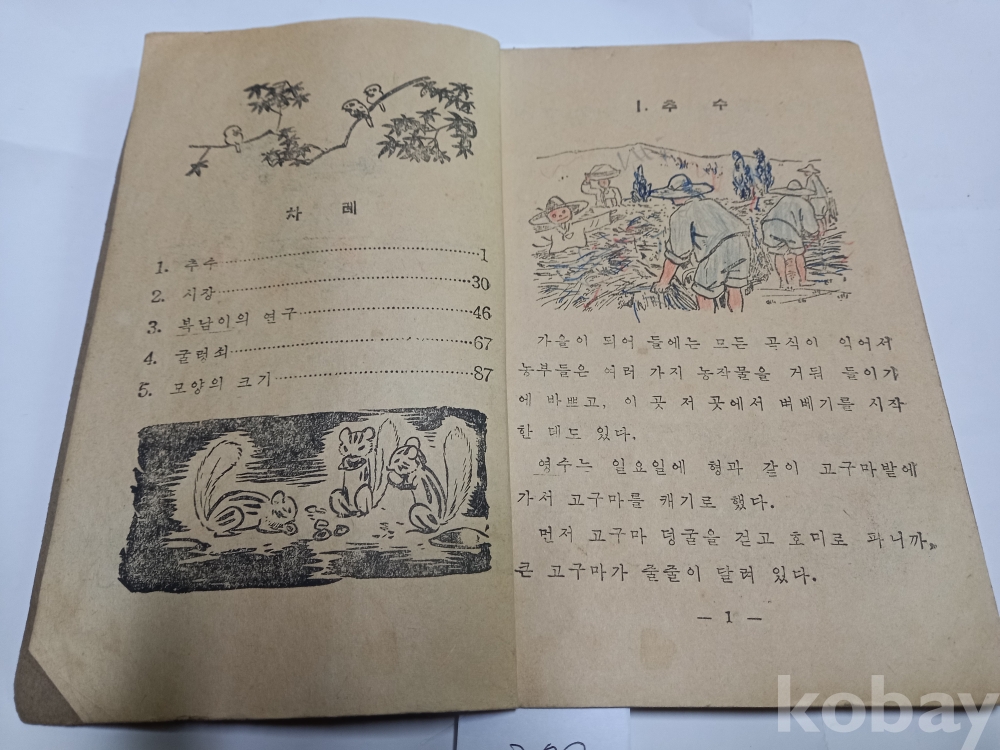 차 례
1. 추수 1
2. 시장 30
3. 복남이의 연구 46
4. 굴렁쇠 67
5. 모양의 크기 87
1. 추 수
가을이 되어 들에는 모든 곡식이 익어서
농부들은 여러 가지 농작물을 거둬 들이기
에 바쁘고, 이 곳 저 곳에서 벼베기를 시작
한 데도 있다.
영수는 일요일에 형과 같이 고구마밭에
가서 고구마를 캐기로 했다.
먼저 고구마 덩굴을 걷고 호미로 파니까,
큰 고구마가 줄줄이 달려 있다.
— 1 —
kobay